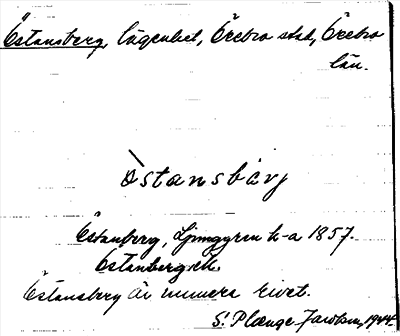 Östansberg, lägenhet, Örebro stad, Örebro
län.
òstansbärj
Östanberg, Ljunggren h-a 1857.
Östanberg ek.
Östansberg är numera rivet.
S. Plænge Jacobson, 1944.